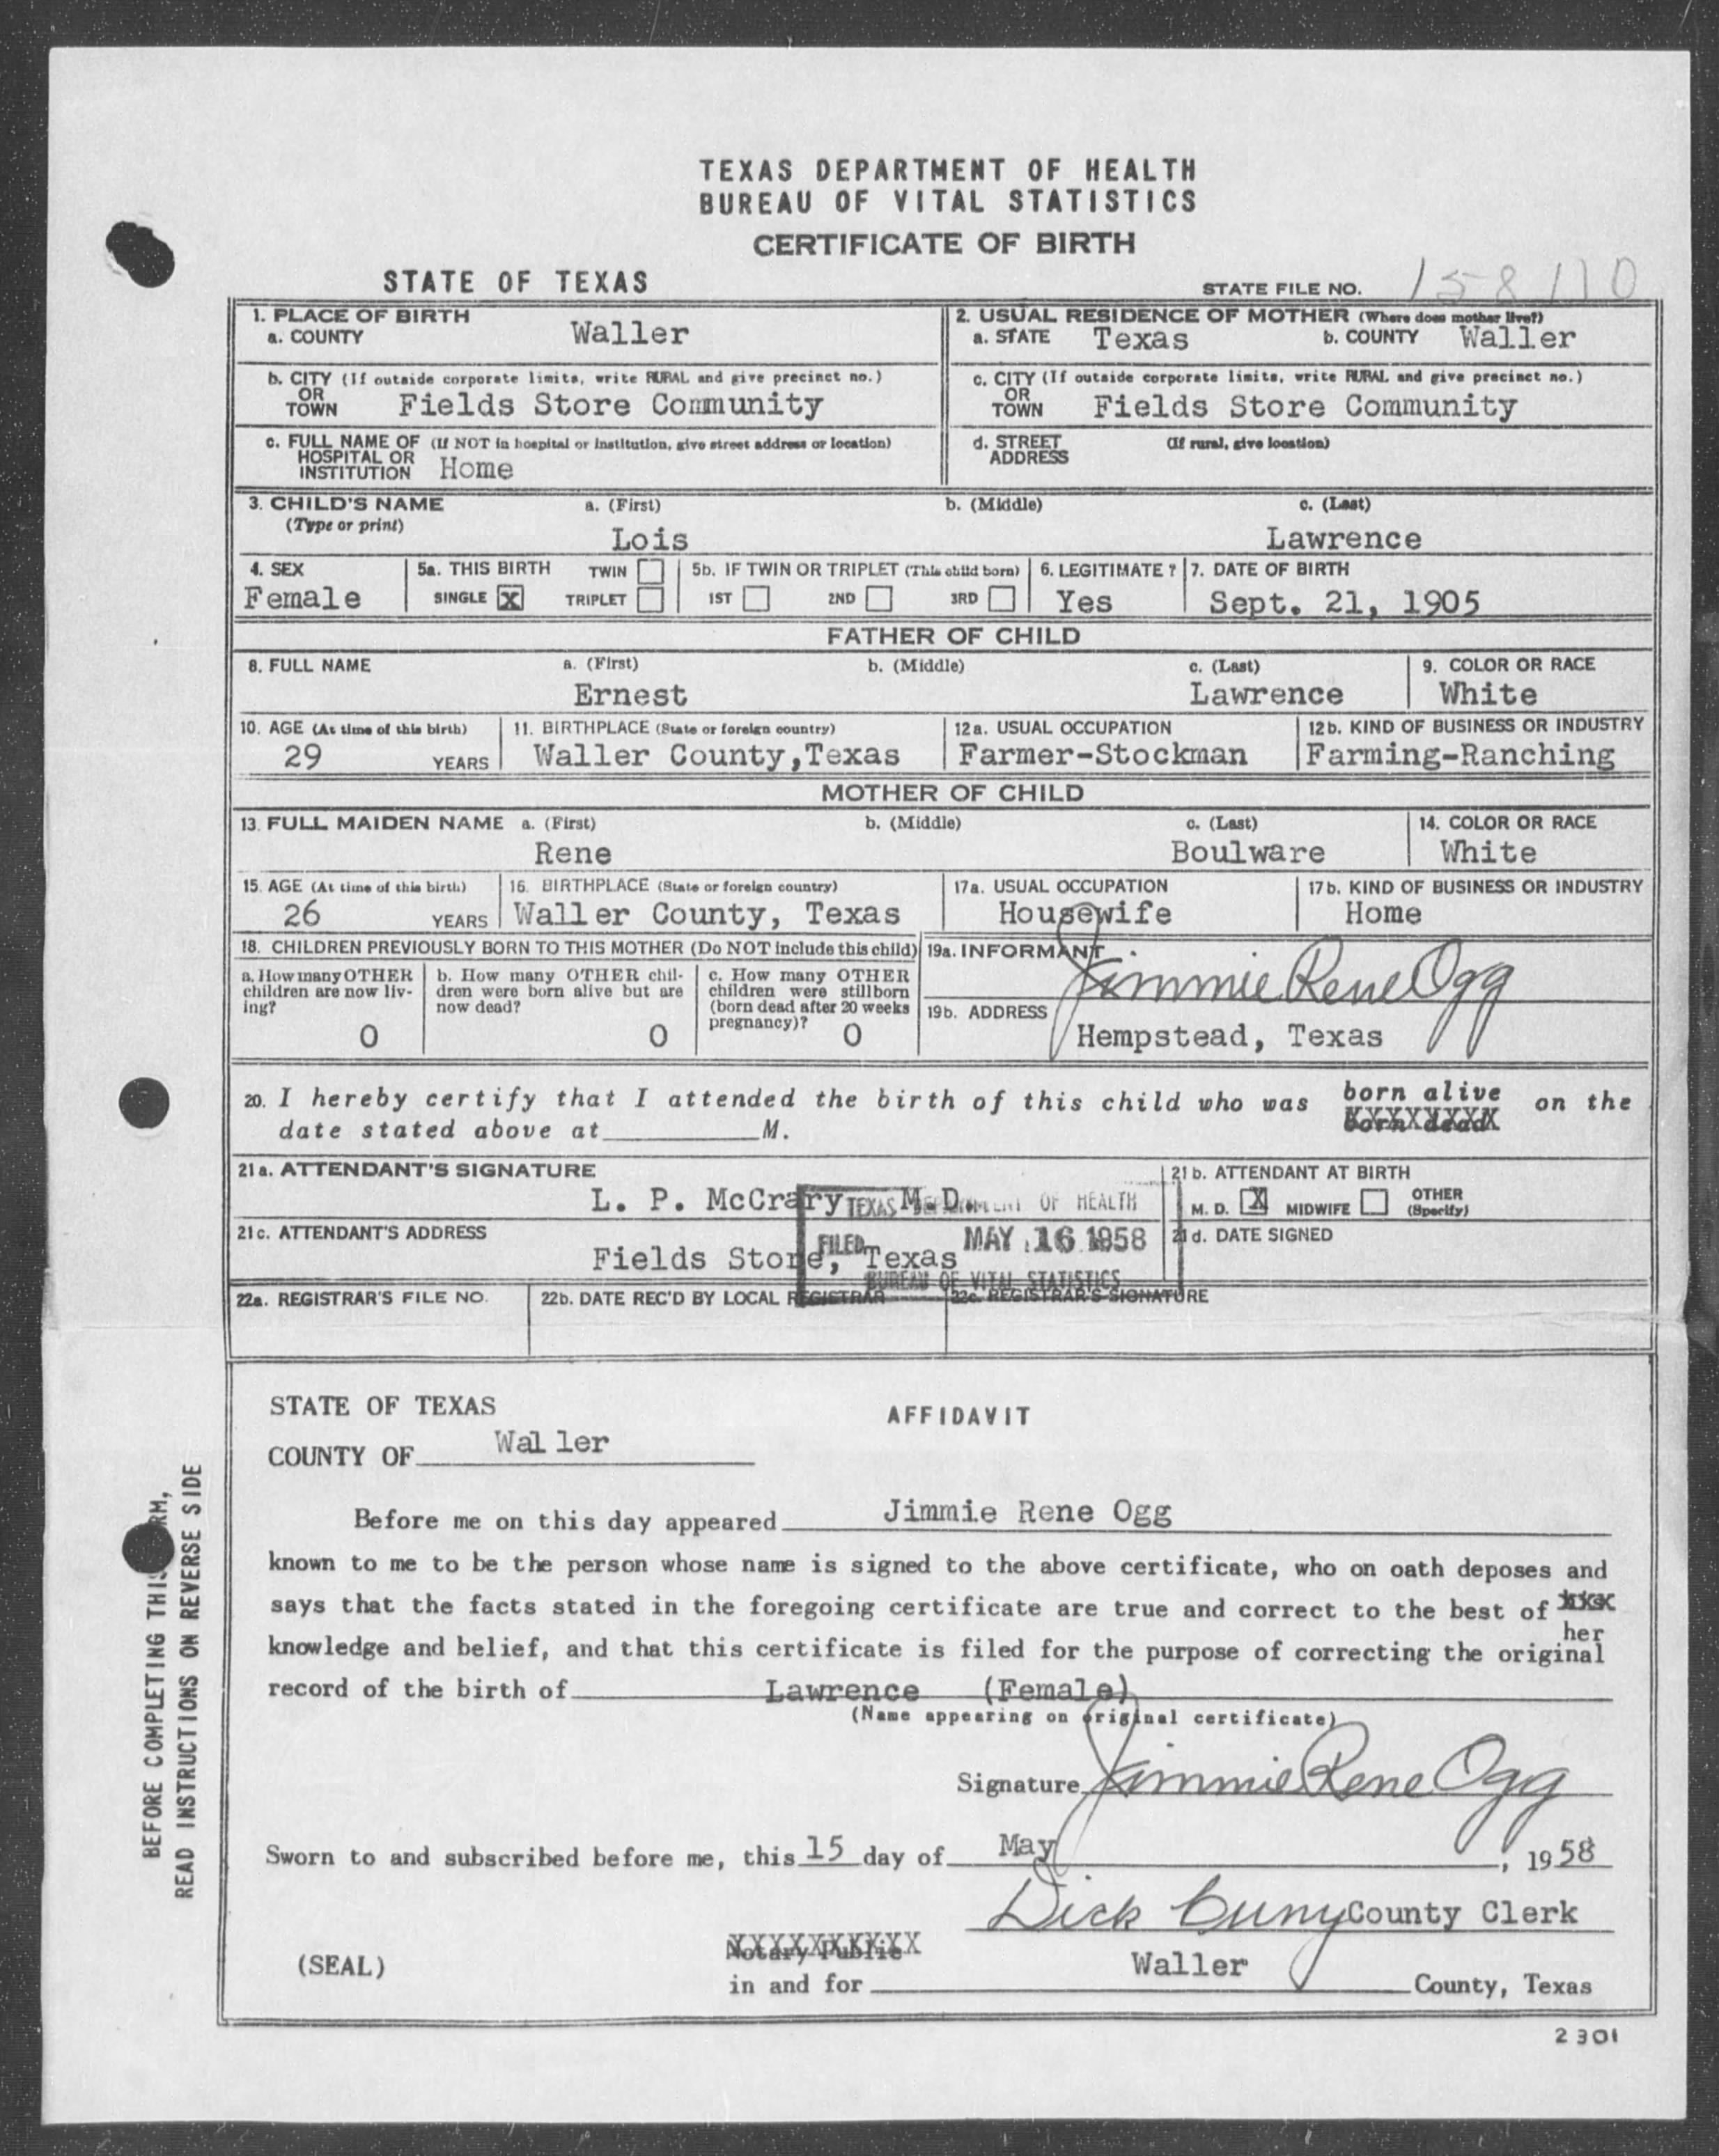 TEXAS DEPARTMENT OF HEALTH
BUREAU OF VITAL STATISTICS
CERTIFICATE OF BIRTH
STATE OF TEXAS
STATE FILE NO. 158110
1. PLACE OF BIRTH
a. COUNTY Waller
2. USUAL RESIDENCE OF MOTHER (Where does mother live?)
a. STATE Texas b. COUNTY Waller
b. CITY (If outside corporate limits, write RURAL and give precinct no.)
OR
TOWN Fields Store Community
c. CITY (If outside corporate limits, write RURAL and give precinct no.)
OR
TOWN Fields Store Community
c. FULL NAME OF (If NOT in hospital or institution, give street address or location)
HOSPITAL OR
INSTITUTION Home
d. STREET (If rural, give location)
ADDRESS
3. CHILD'S NAME a. (First) b. (Middle) c. (Last)
(Type or print)
Lois Lawrence
4. SEX
Female
5a. THIS BIRTH TWIN
SINGLE X TRIPLET
5b. IF TWIN OR TRIPLET (This child born)
1ST 2ND 3RD
6. LEGITIMATE?
Yes
7. DATE OF BIRTH
Sept. 21, 1905
FATHER OF CHILD
8. FULL NAME a. (First) b. (Middle) c. (Last)
Ernest Lawrence
9. COLOR OR RACE
White
10. AGE (At time of this birth)
29 YEARS
11. BIRTHPLACE (State or foreign country)
Waller County,Texas
12a. USUAL OCCUPATION
Farmer-Stockman
12b. KIND OF BUSINESS OR INDUSTRY
Farming-Ranching
MOTHER OF CHILD
13. FULL MAIDEN NAME a. (First) b. (Middle) c. (Last)
Rene Boulware
14. COLOR OR RACE
White
15. AGE (At time of this birth)
26 YEARS
16. BIRTHPLACE (State or foreign country)
Waller County, Texas
17a. USUAL OCCUPATION
Housewife
17b. KIND OF BUSINESS OR INDUSTRY
Home
18. CHILDREN PREVIOUSLY BORN TO THIS MOTHER (Do NOT include this child)
a. How many OTHER
children are now liv-
ing?
0
b. How many OTHER chil-
dren were born alive but are
now dead?
0
c. How many OTHER
children were stillborn
(born dead after 20 weeks
pregnancy)? 0
19a. INFORMANT
Jimmie Rene Ogg
19b. ADDRESS
Hempstead, Texas
20. I hereby certify that I attended the birth of this child who was born alive on the
born dead
date stated above at M.
21a. ATTENDANT'S SIGNATURE
L. P. McCrary M.D.
21b. ATTENDANT AT BIRTH
M. D. X MIDWIFE OTHER
(Specify)
21c. ATTENDANT'S ADDRESS
Fields Store, Texas
21d. DATE SIGNED
TEXAS DEPARTMENT OF HEALTH
FILED MAY 16 1958
BUREAU OF VITAL STATISTICS
22a. REGISTRAR'S FILE NO.
22b. DATE REC'D BY LOCAL REGISTRAR
22c. REGISTRAR'S SIGNATURE
STATE OF TEXAS
AFFIDAVIT
COUNTY OF Waller
Before me on this day appeared Jimmie Rene Ogg
known to me to be the person whose name is signed to the above certificate, who on oath deposes and
says that the facts stated in the foregoing certificate are true and correct to the best of
her
knowledge and belief, and that this certificate is filed for the purpose of correcting the original
record of the birth of Lawrence (Female)
(Name appearing on original certificate)
Signature Jimmie Rene Ogg
Sworn to and subscribed before me, this 15 day of May, 1958
Dick Cuny County Clerk
Notary Public
(SEAL)
in and for Waller County, Texas
2301
BEFORE COMPLETING THIS FORM,
READ INSTRUCTIONS ON REVERSE SIDE